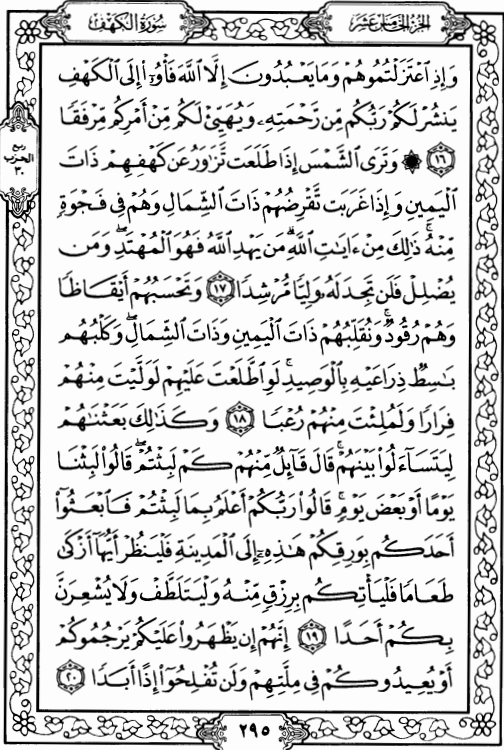 سُورَةُ الكَهْفِ
الجُزْءُ الخَامِسَ عَشَرَ
وَإِذِ ٱعْتَزَلْتُمُوهُمْ وَمَا يَعْبُدُونَ إِلَّا ٱللَّهَ فَأْوُۥٓاْ إِلَى ٱلْكَهْفِ
يَنشُرْ لَكُمْ رَبُّكُم مِّن رَّحْمَتِهِۦ وَيُهَيِّئْ لَكُم مِّنْ أَمْرِكُم مِّرْفَقًا
﴿١٦﴾ ۞ وَتَرَى ٱلشَّمْسَ إِذَا طَلَعَت تَّزَٰوَرُ عَن كَهْفِهِمْ ذَاتَ
ٱلْيَمِينِ وَإِذَا غَرَبَت تَّقْرِضُهُمْ ذَاتَ ٱلشِّمَالِ وَهُمْ فِى فَجْوَةٍ
مِّنْهُ ۚ ذَٰلِكَ مِنْ ءَايَٰتِ ٱللَّهِ ۗ مَن يَهْدِ ٱللَّهُ فَهُوَ ٱلْمُهْتَدِ ۖ وَمَن
يُضْلِلْ فَلَن تَجِدَ لَهُۥ وَلِيًّا مُّرْشِدًا ﴿١٧﴾ وَتَحْسَبُهُمْ أَيْقَاظًا
وَهُمْ رُقُودٌ ۚ وَنُقَلِّبُهُمْ ذَاتَ ٱلْيَمِينِ وَذَاتَ ٱلشِّمَالِ ۖ وَكَلْبُهُم
بَٰسِطٌ ذِرَاعَيْهِ بِٱلْوَصِيدِ ۚ لَوِ ٱطَّلَعْتَ عَلَيْهِمْ لَوَلَّيْتَ مِنْهُمْ
فِرَارًا وَلَمُلِئْتَ مِنْهُمْ رُعْبًا ﴿١٨﴾ وَكَذَٰلِكَ بَعَثْنَٰهُمْ
لِيَتَسَآءَلُواْ بَيْنَهُمْ ۚ قَالَ قَآئِلٌ مِّنْهُمْ كَمْ لَبِثْتُمْ ۖ قَالُواْ لَبِثْنَا
يَوْمًا أَوْ بَعْضَ يَوْمٍ ۚ قَالُواْ رَبُّكُمْ أَعْلَمُ بِمَا لَبِثْتُمْ فَٱبْعَثُوٓاْ
أَحَدَكُم بِوَرِقِكُمْ هَٰذِهِۦٓ إِلَى ٱلْمَدِينَةِ فَلْيَنظُرْ أَيُّهَآ أَزْكَىٰ
طَعَامًا فَلْيَأْتِكُم بِرِزْقٍ مِّنْهُ وَلْيَتَلَطَّفْ وَلَا يُشْعِرَنَّ
بِكُمْ أَحَدًا ﴿١٩﴾ إِنَّهُمْ إِن يَظْهَرُواْ عَلَيْكُمْ يَرْجُمُوكُمْ
أَوْ يُعِيدُوكُمْ فِى مِلَّتِهِمْ وَلَن تُفْلِحُوٓاْ إِذًا أَبَدًا ﴿٢٠﴾
ربع
الحزب
٣٠
٢٩٥